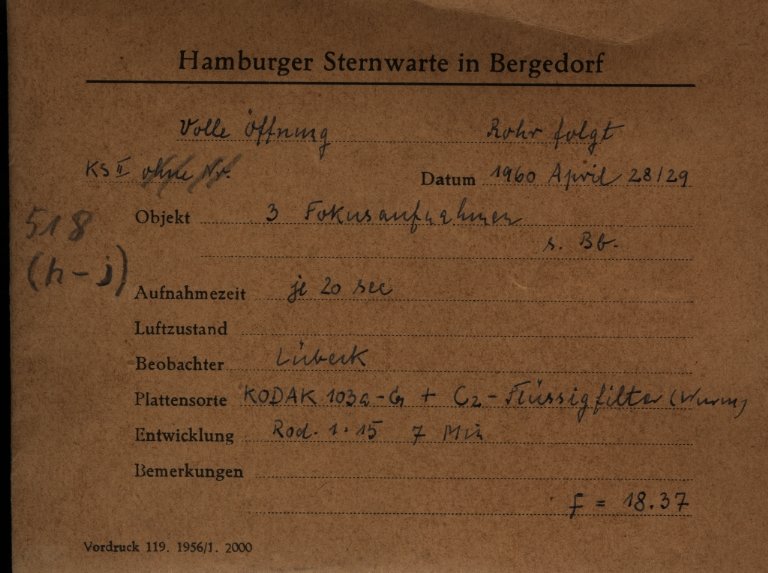 Hamburger Sternwarte in Bergedorf
Volle Öffnung Rohr folgt
KS II ohne Nr. Datum 1960 April 28/29
518 Objekt 3 Fokusaufnahmen
s. Bb.
(h-j) Aufnahmezeit je 20 sec
Luftzustand
Beobachter Lübeck
Plattensorte KODAK 103a-G + C2-Flüssigfilter (Wurm)
Entwicklung Rod. 1:15 7 Min
Bemerkungen
f = 18.37
Vordruck 119. 1956/1. 2000